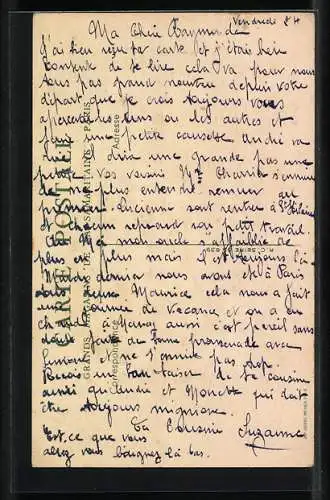 Vendredi 8 H
Ma Chère Raymonde
J'ai bien reçu ta carte et j'étais bien
contente de te lire cela va pour nous
tous pas grand depuis votre
départ que je crois toujours vous
apercevoir les uns ou les autres et
faire une petite causette André va
dira une grande pas une
petite vos voisins Mme s'ennuie
de ne plus entendre remuer au
premier. Lucienne sont rentrés à St Hilaire
et chacun reprend son petit travail.
mon oncle s'affaiblie de
plus en plus mais toujours là
dernier nous avons été à Paris
tous deux Maurice cela nous a fait
une journée de vacance et on a eu
chaud à aussi c'est pareil sans
de bonne promenade avec
et ne s'ennuie pas
Reçois un bon baiser de ta cousine
ainsi qu'André et Monette qui doit
être toujours mignonne.
Ta Cousine Suzanne
Est-ce que vous
allez vous baigner là bas.
CARTE POSTALE
GRANDS MAGASINS DE LA SAMARITAINE - PARIS
Correspondance
Adresse